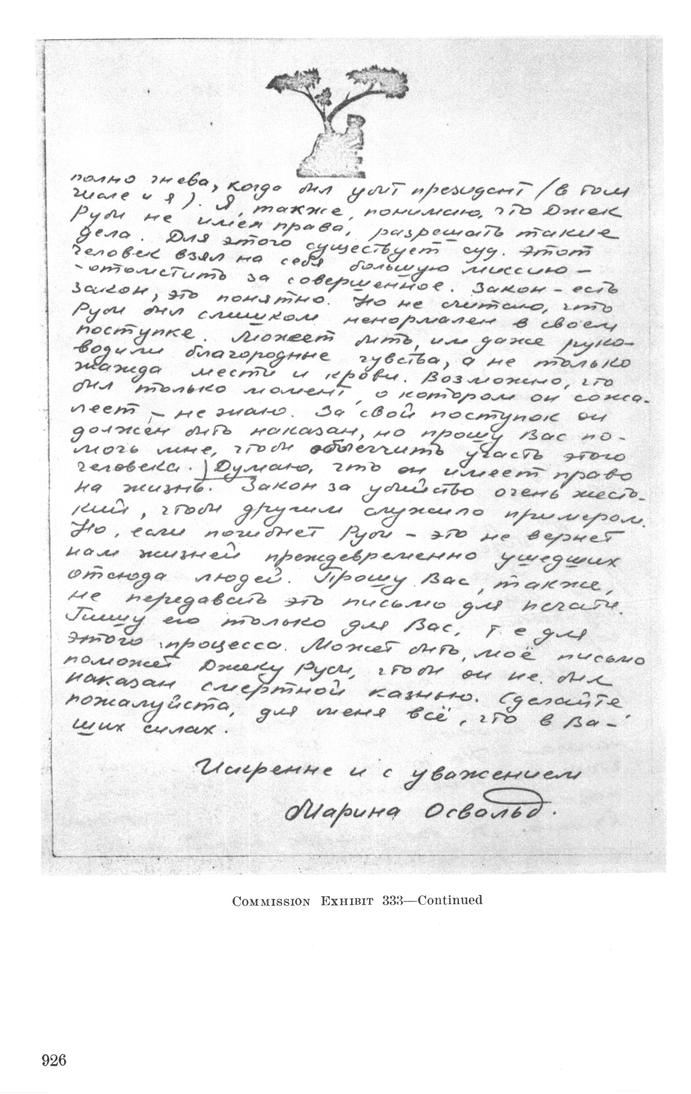 полно гнева, когда был убит президент (в том
числе и я). Я, также, понимаю, что Джек
Руби не имел права, разрешать такие
дела. Для этого существует суд. Этот
человек взял на себя большую миссию –
- отомстить за совершенное. Закон - есть
закон, это понятно. Но не считаю, что
Руби был слишком ненормален в своем
поступке. Может быть, им даже руко-
водили благородные чувства, а не только
жажда мести и крови. Возможно, что
был только момент, о котором он сожа-
леет, – не знаю. За свой поступок он
должен быть наказан, но прошу Вас по-
мочь мне, чтобы облегчить участь этого
человека. Думаю, что он имеет право
на жизнь. Закон за убийство очень жест-
кий, чтобы другим служило примером.
Но, если погибнет Руби - это не вернет
нам жизней преждевременно ушедших
отсюда людей. Прошу Вас, также,
не передавать это письмо для печати.
Пишу его только для Вас, т е для
этого процесса. Может быть, моё письмо
поможет Джеку Руби, чтобы он не был
наказан смертной казнью. Сделайте
пожалуйста, для меня всё, что в Ва-
ших силах.
Искренне и с уважением
Марина Освольд.
COMMISSION EXHIBIT 333—Continued
926